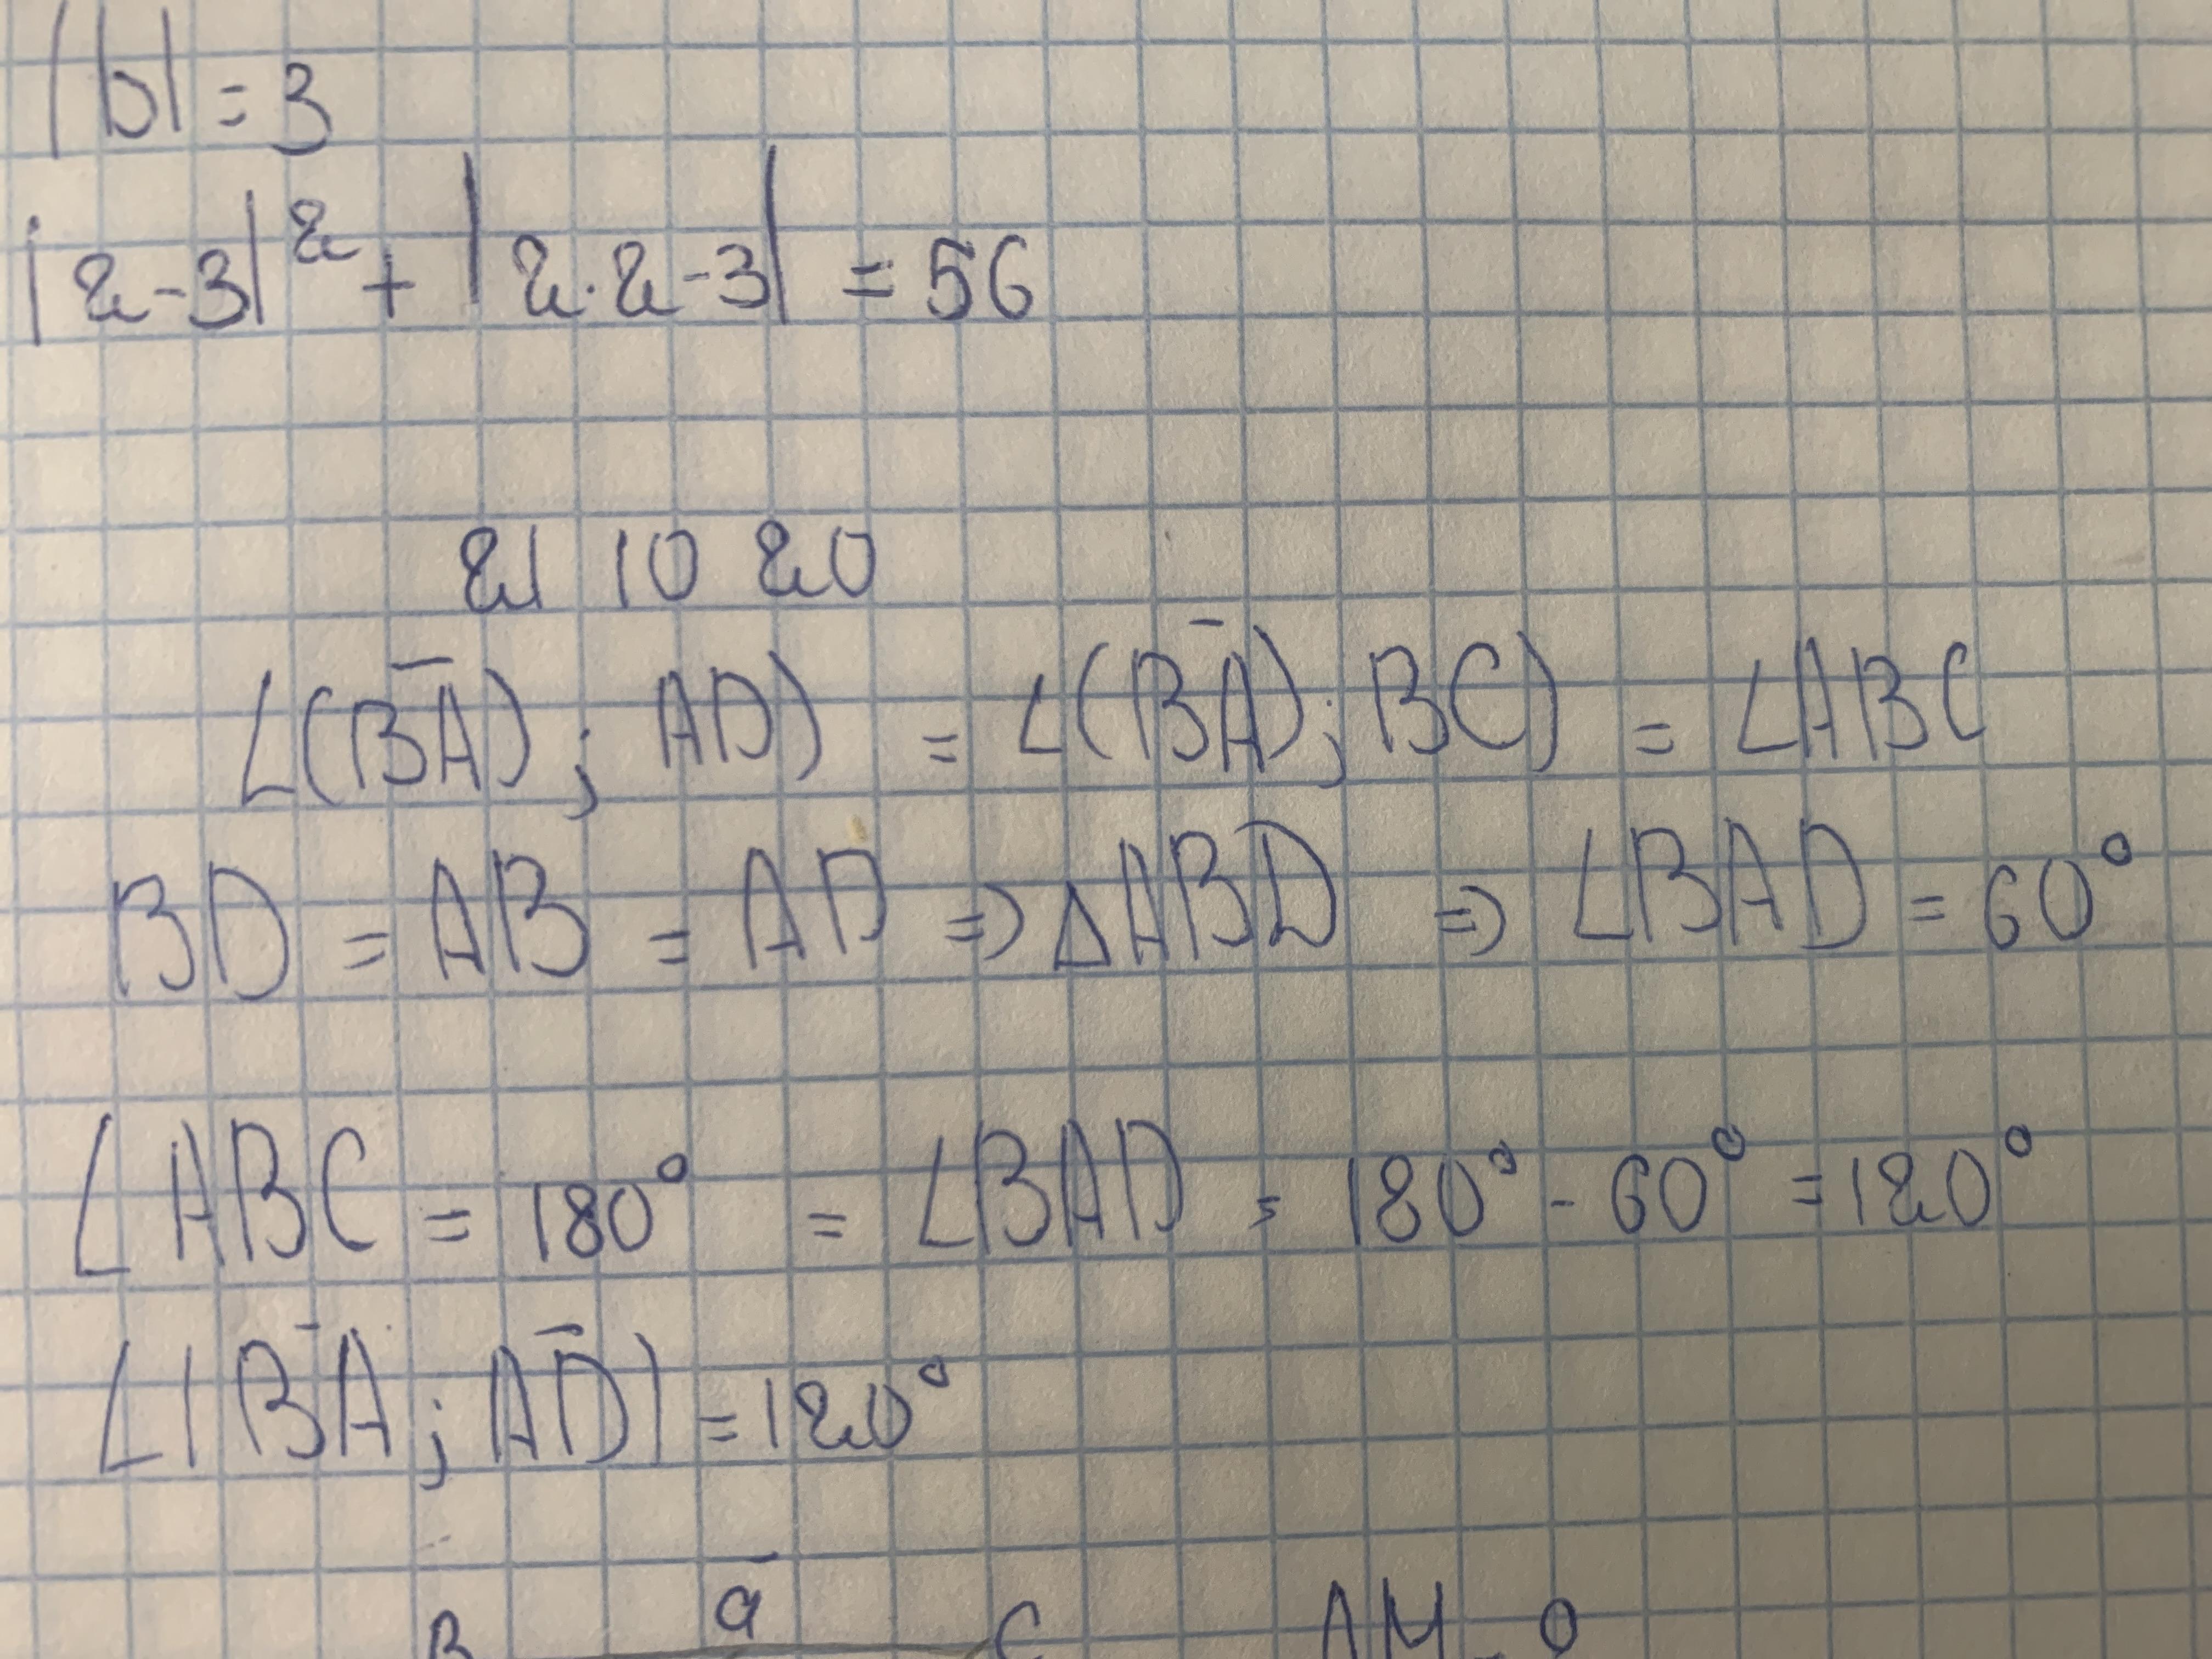 |b| = 3
|2-3|² + |2·2-3| = 56
21 10 20
∠(B̅A̅); AD) = ∠(B̅A̅); BC) = ∠ABC
BD = AB = AD ⇒ ΔABD ⇒ ∠BAD = 60°
∠ABC = 180° = ∠BAD = 180° - 60° = 120°
∠(B̅A̅; A̅D̅) = 120°
a̅
B C AM - ?